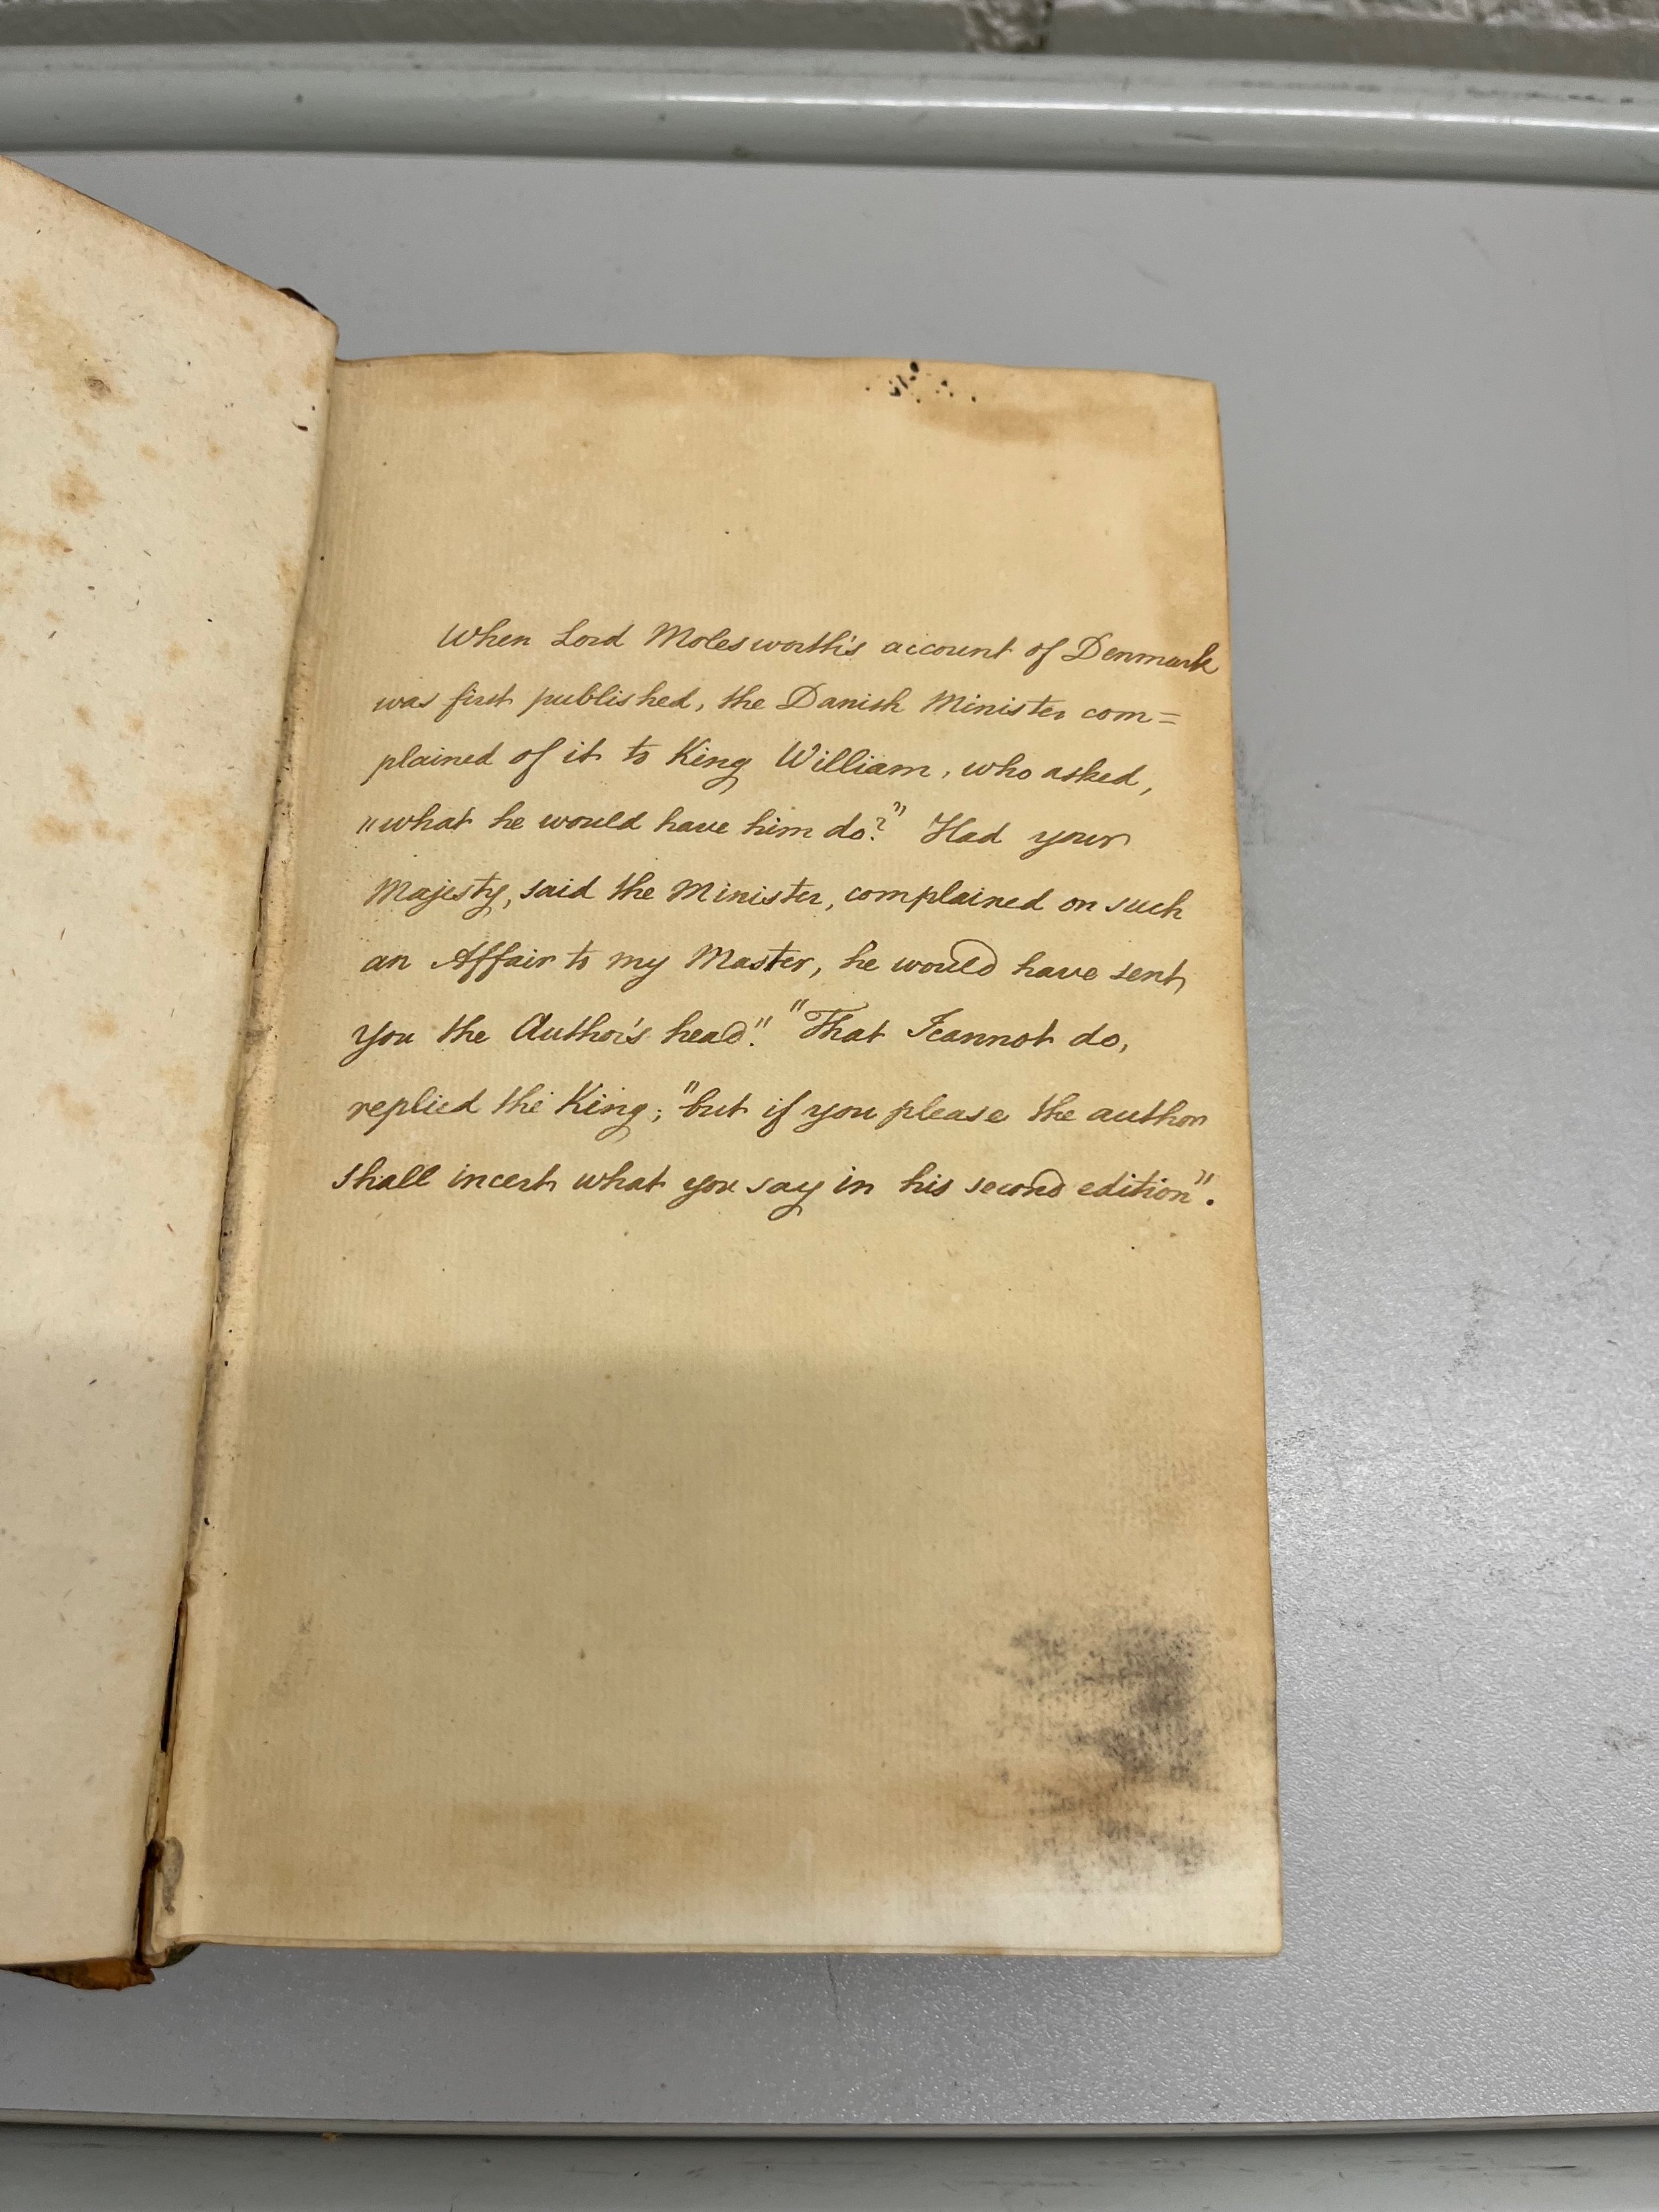 When Lord Molesworth's account of Denmark
was first published, the Danish Minister com=
plained of it to King William, who asked,
"what he would have him do?" Had your
Majesty, said the Minister, complained on such
an Affair to my Master, he would have sent
you the Author's head." "That I cannot do,
replied the King; "but if you please the author
shall incert what you say in his second edition".